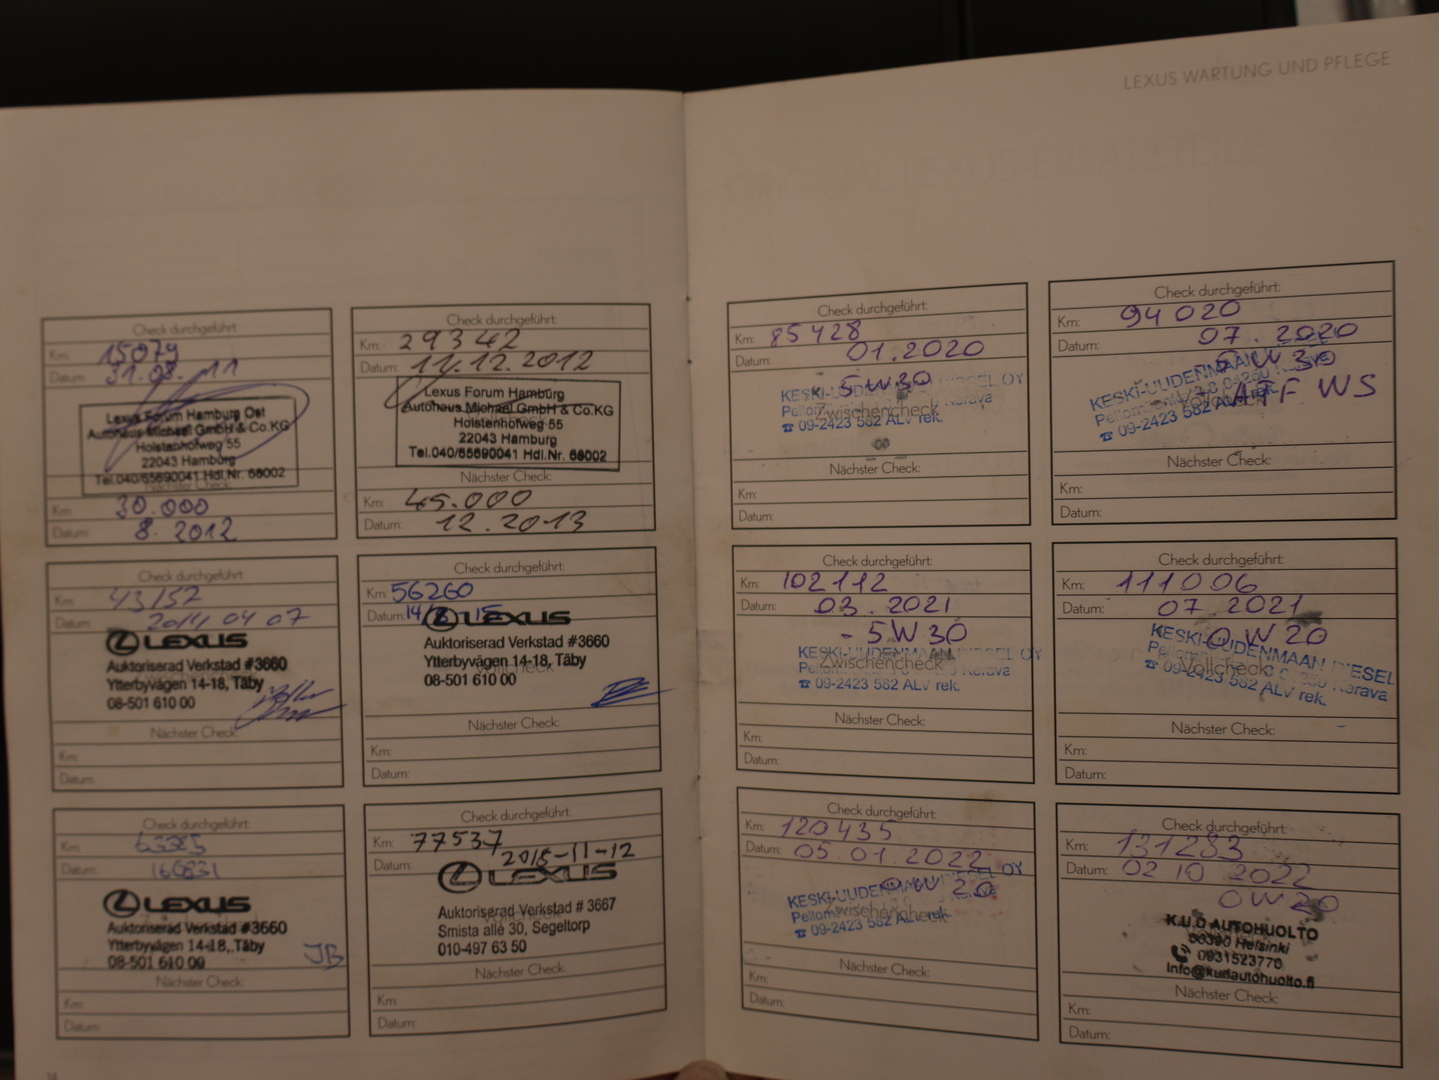 LEXUS WARTUNG UND PFLEGE
Check durchgeführt:
Km: 15079
Datum: 31.08.11
Lexus Forum Hamburg Ost
Autohaus Michael GmbH & Co.KG
Holstenhofweg 55
22043 Hamburg
Tel.040/65690041 Hdl.Nr. 68002
Nächster Check:
Km: 30.000
Datum: 8.2012
Check durchgeführt:
Km: 29342
Datum: 11.12.2012
Lexus Forum Hamburg
Autohaus Michael GmbH & Co.KG
Holstenhofweg 55
22043 Hamburg
Tel.040/65690041 Hdl.Nr. 68002
Nächster Check:
Km: 45.000
Datum: 12.2013
Check durchgeführt:
Km: 43152
Datum: 2014 04 07
LEXUS
Auktoriserad Verkstad #3660
Ytterbyvägen 14-18, Täby
08-501 610 00
Nächster Check:
Km:
Datum:
Check durchgeführt:
Km: 56260
Datum:
LEXUS
Auktoriserad Verkstad #3660
Ytterbyvägen 14-18, Täby
08-501 610 00
Nächster Check:
Km:
Datum:
Check durchgeführt:
Km:
Datum: 160831
LEXUS
Auktoriserad Verkstad #3660
Ytterbyvägen 14-18, Täby
08-501 610 00
JB
Nächster Check:
Km:
Datum:
Check durchgeführt:
Km: 77537
Datum: 2018-11-12
LEXUS
Auktoriserad Verkstad # 3667
Smista allé 30, Segeltorp
010-497 63 50
Nächster Check:
Km:
Datum:
14
Check durchgeführt:
Km: 85428
Datum: 01.2020
5W30
KESKI-UUDENMAAN DIESEL OY
Zwischencheck
Kerava
☎ 09-2423 582 ALV rek.
Nächster Check:
Km:
Datum:
Check durchgeführt:
Km: 94020
Datum: 07.2020
5W30
KESKI-UUDENMAAN
ATF WS
Vollcheck
☎ 09-2423 582 ALV rek.
Nächster Check:
Km:
Datum:
Check durchgeführt:
Km: 102112
Datum: 03.2021
- 5W30
KESKI-UUDENMAAN DIESEL OY
Zwischencheck
Kerava
☎ 09-2423 582 ALV rek.
Nächster Check:
Km:
Datum:
Check durchgeführt:
Km: 111006
Datum: 07.2021
0W20
KESKI-UUDENMAAN DIESEL
Vollcheck
Kerava
☎ 09-2423 582 ALV rek.
Nächster Check:
Km:
Datum:
Check durchgeführt:
Km: 120435
Datum: 05.01.2022
0W20
KESKI-UUDENMAAN DIESEL OY
Zwischencheck
☎ 09-2423 582 ALV rek.
Nächster Check:
Km:
Datum:
Check durchgeführt:
Km: 131283
Datum: 02 10 2022
0W20
K.U.D AUTOHUOLTO
00390 Helsinki
0931523770
info@kudautohuolto.fi
Nächster Check:
Km:
Datum: